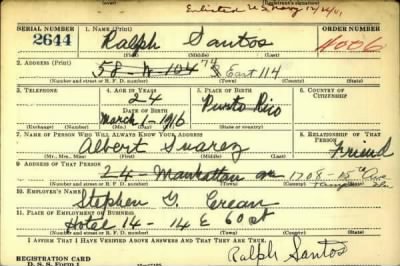 Enlisted U.S. Navy 12/26/41
(Registrant's signature)
SERIAL NUMBER
1. NAME (Print)
ORDER NUMBER
2644
Ralph Santos
N006
(First) (Middle) (Last)
2. ADDRESS (Print)
58-W-104 74 East 114
(Number and street or R. F. D. number) (Town) (County) (State)
3. TELEPHONE
4. AGE IN YEARS
5. PLACE OF BIRTH
6. COUNTRY OF CITIZENSHIP
24
Puerto Rico
DATE OF BIRTH
March 1-1916
(Exchange) (Number) (Mo.) (Day) (Yr.) (State or country)
7. NAME OF PERSON WHO WILL ALWAYS KNOW YOUR ADDRESS
8. RELATIONSHIP OF THAT PERSON
Albert Suarez
Friend
(Mr., Mrs., Miss) (First) (Middle) (Last)
9. ADDRESS OF THAT PERSON
24- Manhattan av 1708-15th Ave
Tampa Fla
(Number and street or R. F. D. number) (Town) (County) (State)
10. EMPLOYER'S NAME
Stephen G. Crean
11. PLACE OF EMPLOYMENT OR BUSINESS
Hotel 14- 14 E 60 st
(Number and street or R. F. D. number) (Town) (County) (State)
I AFFIRM THAT I HAVE VERIFIED ABOVE ANSWERS AND THAT THEY ARE TRUE.
REGISTRATION CARD
D. S. S. FORM 1
Ralph Santos